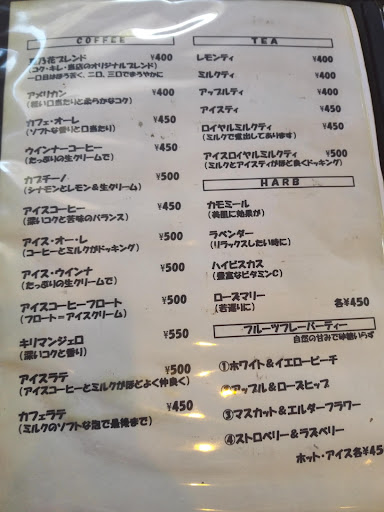 COFFEE
乃花ブレンド ¥400
(コク・キレ・当店のオリジナルブレンド)
一口目はほろ苦く、二口、三口でまろやかに
アメリカン ¥400
(軽い口当たりと柔らかなコク)
カフェ・オーレ ¥450
(ソフトな香りと口当たり)
ウインナーコーヒー ¥450
(たっぷりの生クリームで)
カプチーノ ¥500
(シナモンとレモン&生クリーム)
アイスコーヒー ¥450
(深いコクと苦味のバランス)
アイス・オーレ ¥500
(コーヒーとミルクがドッキング)
アイス・ウインナ ¥500
(たっぷりの生クリームで)
アイスコーヒーフロート ¥500
(フロート=アイスクリーム)
キリマンジェロ ¥550
(深いコクと香り)
アイスラテ ¥500
(アイスコーヒーとミルクがほどよく仲良く)
カフェラテ ¥450
(ミルクのソフトな泡で最後まで)
TEA
レモンティ ¥400
ミルクティ ¥400
アップルティ ¥400
アイスティ ¥450
ロイヤルミルクティ ¥450
(ミルクで煮出してあります)
アイスロイヤルミルクティ ¥500
(ミルクとアイスティがほど良くドッキング)
HARB
カモミール
(美肌に効果が)
ラベンダー
(リラックスしたい時に)
ハイビスカス
(豊富なビタミンC)
ローズマリー 各¥450
(若返りに)
フルーツフレーバーティー
自然の甘みで砂糖いらず
①ホワイト&イエローピーチ
②アップル&ローズヒップ
③マスカット&エルダーフラワー
④ストロベリー&ラズベリー
ホット・アイス各¥45